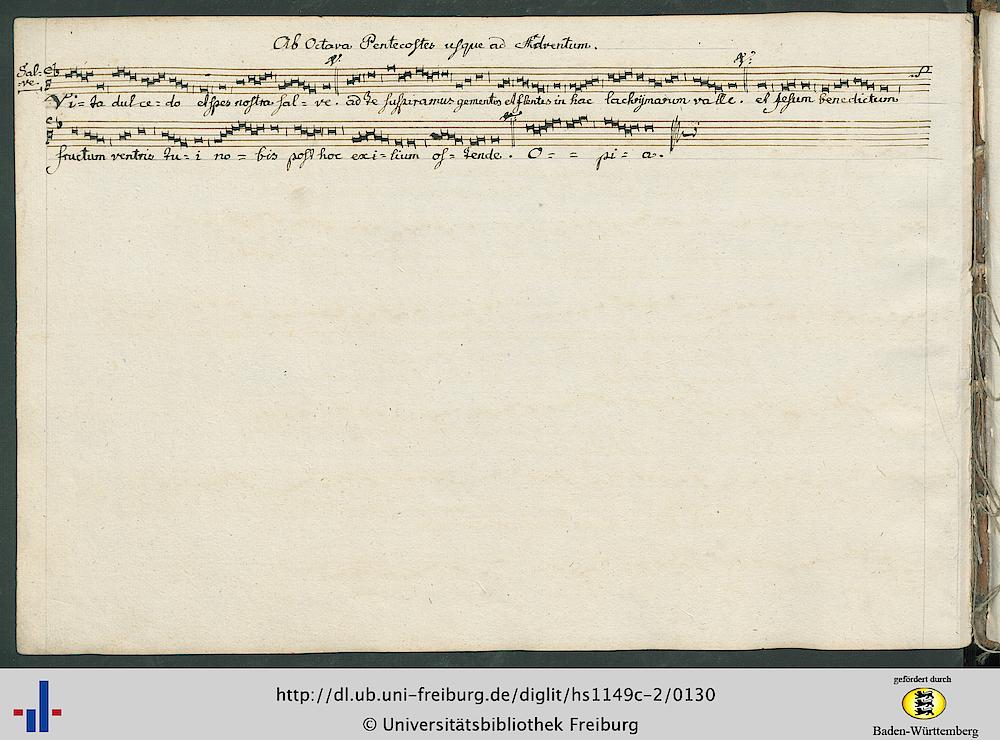 Ab Octava Pentecostes usque ad Adventum.
Sal-
ve.
Vi-ta dulce-do et spes nostra sal-ve. ad te suspiramus gementes et flentes in hac lachrijmarum valle. et Jesum benedictum
fructum ventris tu-i no-bis post hoc exi-lium os-tende. O - - pi-a.
http://dl.ub.uni-freiburg.de/diglit/hs1149c-2/0130
© Universitätsbibliothek Freiburg
gefördert durch
Baden-Württemberg